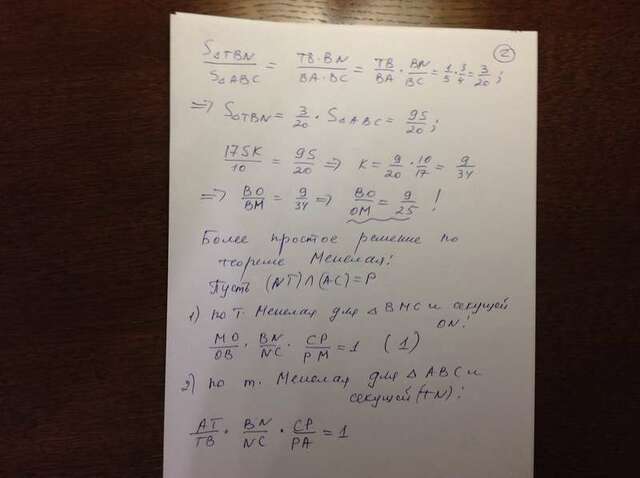 ②
S△TBN / S△ABC = TB·BN / BA·BC = TB/BA · BN/BC = 1/5 · 3/4 = 3/20 ;
=> S△TBN = 3/20 · S△ABC = 9S/20 ;
17SK/10 = 9S/20 => K = 9/20 · 10/17 = 9/34
=> BO/BM = 9/34 => BO/OM = 9/25 !
Более простое решение по
теореме Менелая!
Пусть (NT)∩(AC)=P
1) по т. Менелая для △BMC и секущей
ON!
MO/OB · BN/NC · CP/PM = 1 (1)
2) по т. Менелая для △ABC и
секущей (TN):
AT/TB · BN/NC · CP/PA = 1